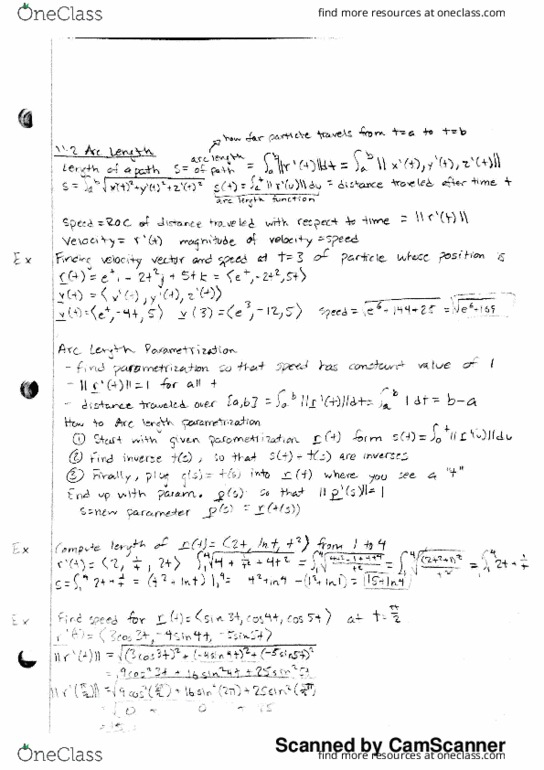 OneClass
find more resources at oneclass.com
how far particle travels from t=a to t=b
11.2 Arc Length
arc length
Length of a path S = of path = ∫ₐᵇ ||r'(t)||dt = ∫ₐᵇ || x'(t), y'(t), z'(t)||
S = ∫ₐᵇ √x'(t)²+y'(t)²+z'(t)² s(t) = ∫ₐᵗ ||r'(u)||du = distance traveled after time t
arc length function
Speed = ROC of distance traveled with respect to time = ||r'(t)||
Velocity = r'(t) magnitude of velocity = speed
Ex Finding velocity vector and speed at t=3 of particle whose position is
r(t) = eᵗi - 2t²j + 5tk = ⟨eᵗ, -2t², 5t⟩
v(t) = ⟨x'(t), y'(t), z'(t)⟩
v(t) = ⟨eᵗ, -4t, 5⟩ v(3) = ⟨e³, -12, 5⟩ speed = √e⁶+144+25 = √e⁶+169
Arc Length Parametrization
- find parametrization so that speed has constant value of 1
- ||r'(t)||=1 for all t
- distance traveled over [a,b] = ∫ₐᵇ ||r'(t)||dt = ∫ₐᵇ 1 dt = b-a
How to Arc length parametrization
① Start with given parametrization r(t) form s(t) = ∫₀ᵗ ||r'(u)||du
② Find inverse t(s), so that s(t) - t(s) are inverses
③ Finally, plug g(s) = t(s) into r(t) where you see a "t"
End up with param. p(s) so that ||p'(s)||=1
s=new parameter p(s) = r(t(s))
Ex Compute length of r(t) = ⟨2t, lnt, t²⟩ from 1 to 4
r'(t) = ⟨2, 1/t, 2t⟩ ∫₁⁴ √4 + 1/t² + 4t² = ∫₁⁴ = ∫₁⁴ √(2t²+1)²/t² = ∫₁⁴ 2t + 1/t
S = ∫₁⁴ 2t + 1/t = (t² + lnt)|₁⁴ = 4²+ln4 - (1²+ln1) = 15+ln4
Ex Find speed for r(t) = ⟨sin3t, cos4t, cos5t⟩ at t=π/2
r'(t) = ⟨3cos3t, -4sin4t, -5sin5t⟩
||r'(t)|| = √(3cos3t)² + (-4sin4t)² + (-5sin5t)²
= √9cos²3t + 16sin²4t + 25sin²5t
||r'(π/2)|| = √9cos²(3π/2) + 16sin²(2π) + 25sin²(5π/2)
= √0 + 0 + 25
OneClass
Scanned by CamScanner
find more resources at oneclass.com